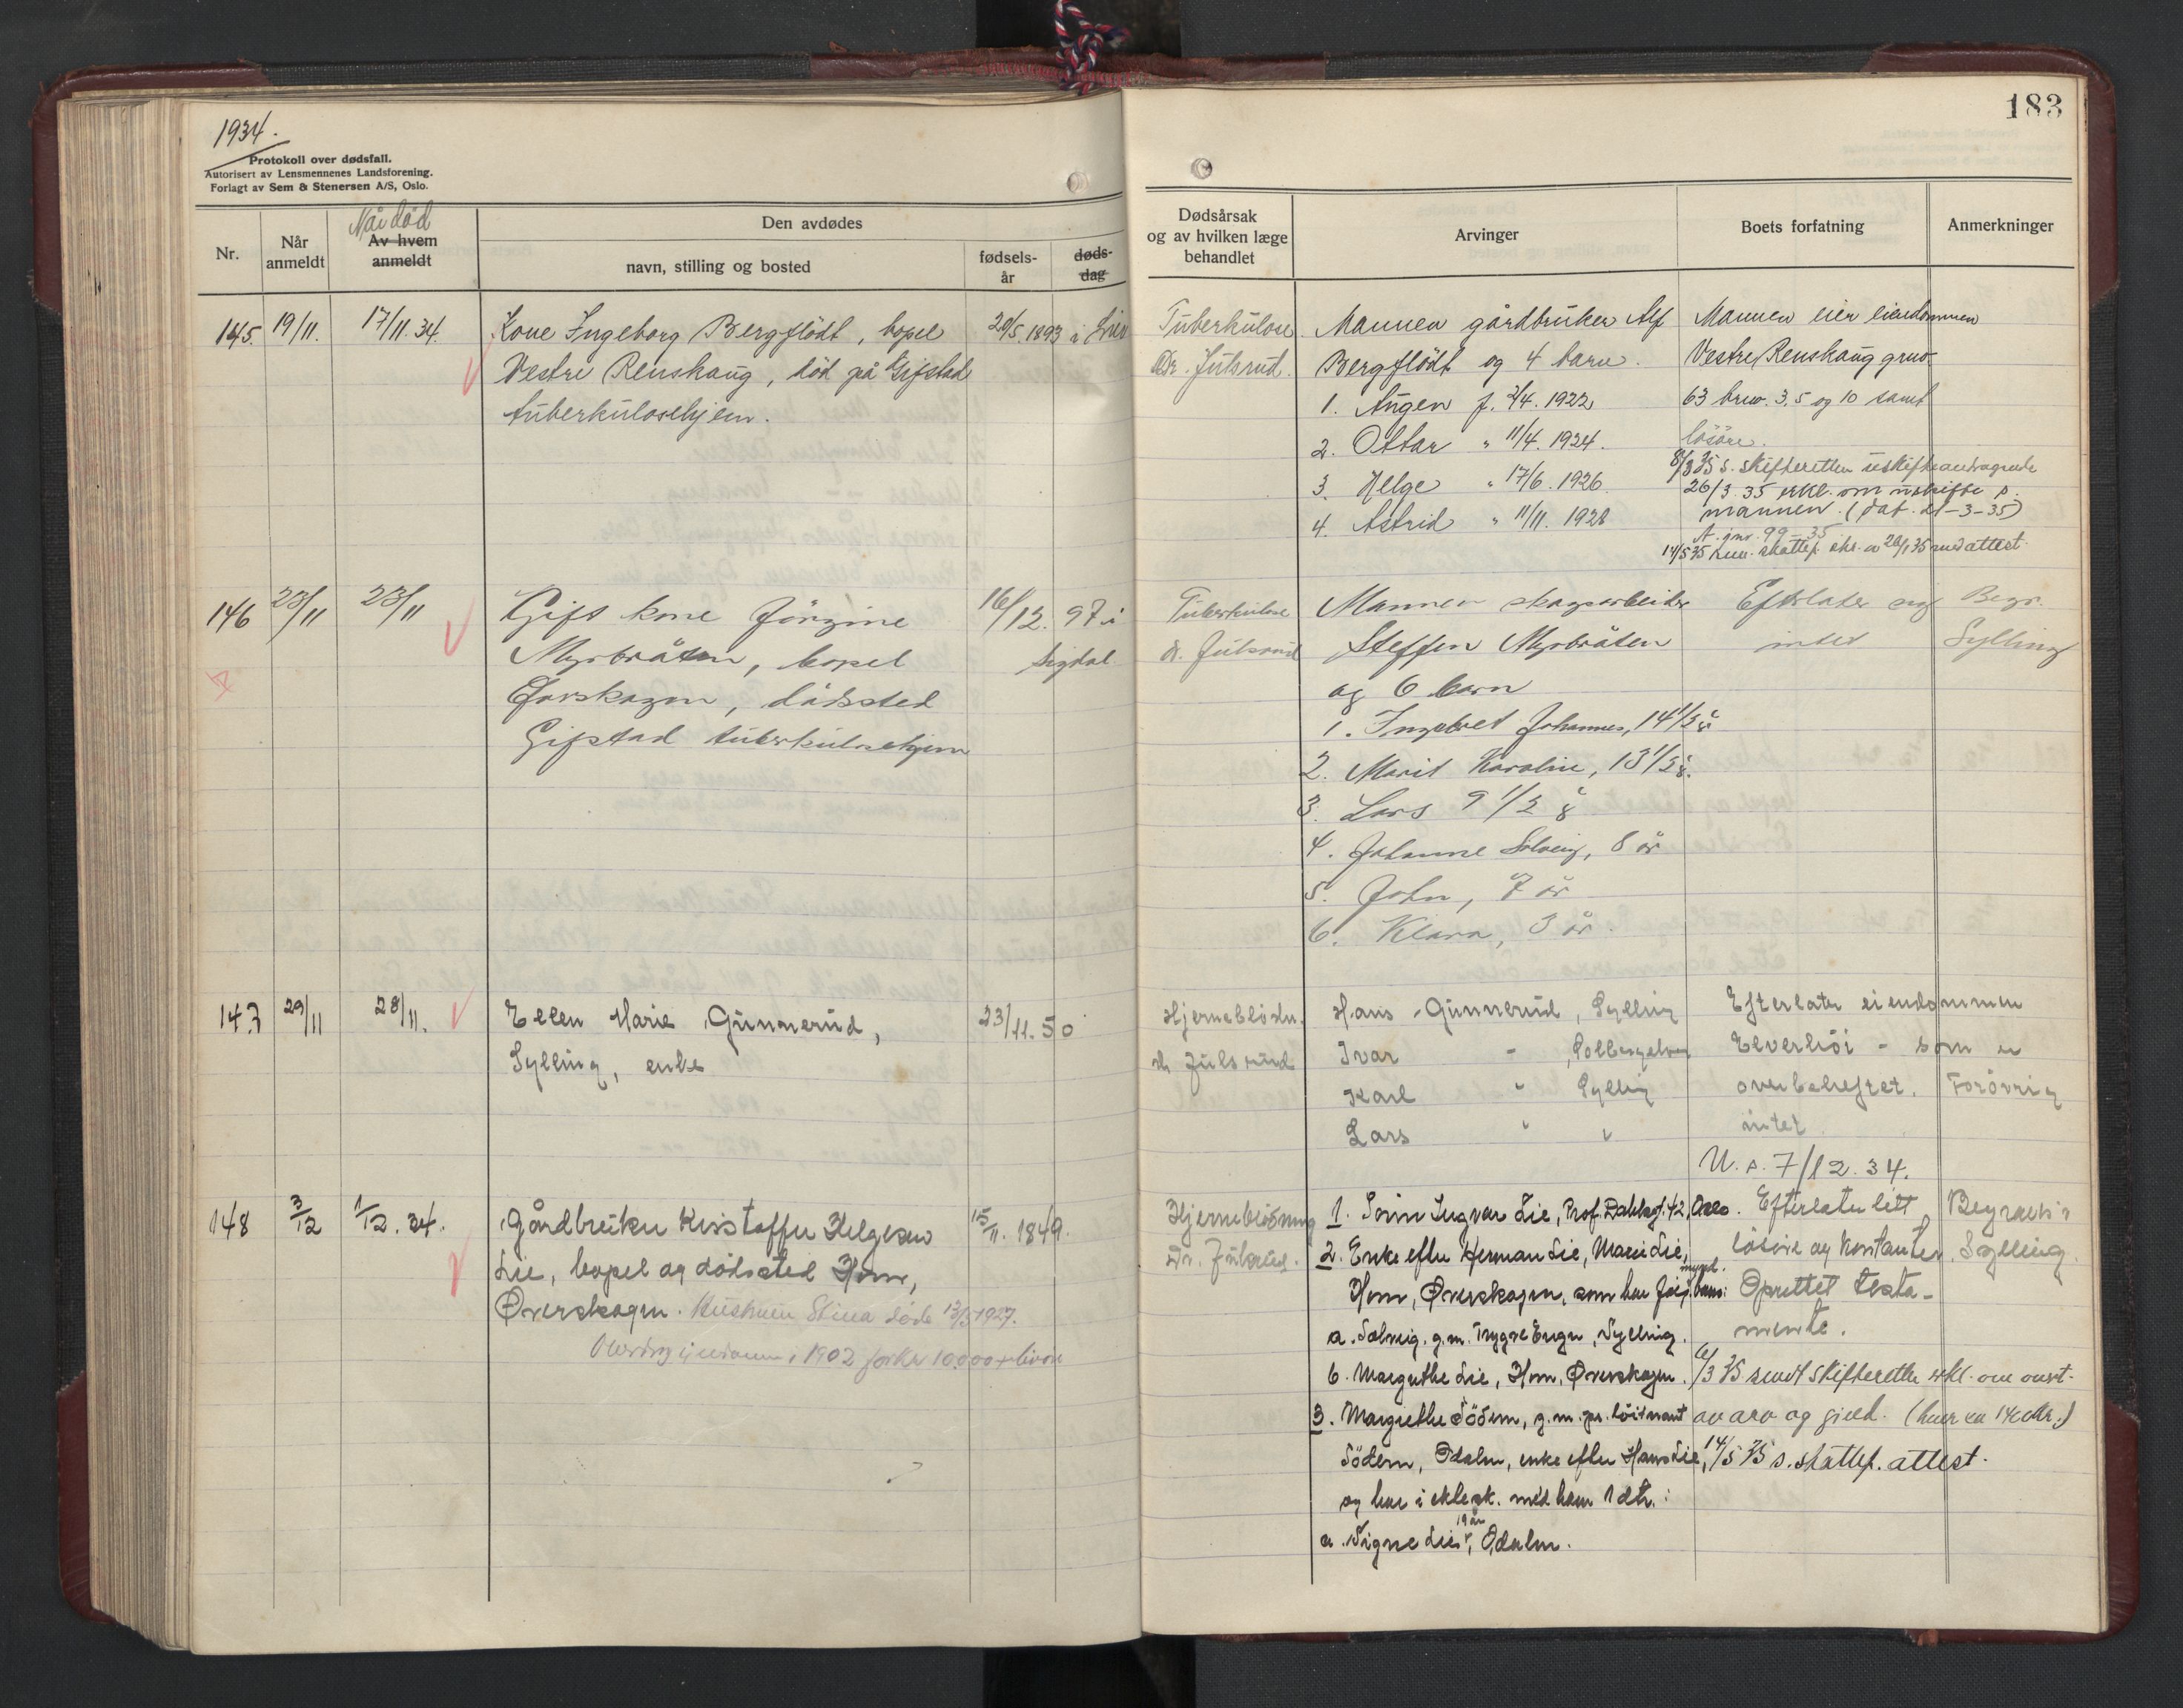 1934.
Protokoll over dødsfall.
Autorisert av Lensmennenes Landsforening.
Forlagt av Sem & Stenersen A/S, Oslo.
183
Nr.
Når anmeldt
Når død
Av hvem anmeldt
Den avdødes
navn, stilling og bosted
fødsels-år
døds-dag
Dødsårsak og av hvilken læge behandlet
Arvinger
Boets forfatning
Anmerkninger
145. 19/11. 17/11.34. Kone Ingeborg Bergflödt, bopel 20/5.1893 i Lier
Vestre Renskaug, död på Gifstad
tuberkulosehjem.
Tuberkulose
Dr. Julsrud.
Mannen gårdbruker Alf
Bergflödt og 4 barn.
1. Augen f. 2/4.1922
2. Ottar " 11/4.1924.
3. Helge " 17/6.1926
4. Astrid " 11/11.1928
Mannen eier eiendommen
Vestre Renskaug gnr.
63 brnr. 3,5 og 10 samt
lösöre.
8/3 35 s. skifteretten uskifteandragende
26/3.35 erkl. om uskifte s.
mannen. (dat. 21-3-35)
A. jnr. 99-35
14/5 35 skattef. av 26/1 35 med attest
146 23/11 23/11 Gift kone Jörgine 16/12. 97 i
Myrbråten, bopel Sigdal
Överskogen, dödssted
Gifstad tuberkulosehjem
Tuberkulose
dr. Julsrud
Mannen skogsarbeider
Steffen Myrbråten
og 6 barn
1. Ingebret Johannes, 14 1/2 år
2. Marit Karoline, 13 1/2 å.
3. Lars 9 1/2 å
4. Johanne Solveig, 8 år
5. John, 7 år
6. Klara, 3 år.
Efterlater sig
intet
Begr.
Sylling
147 29/11 28/11. Ellen Marie Gunnerud, 23/11.50
Sylling, enke
Hjerneblödn.
dr Julsrud
Hans Gunnerud, Sylling
Ivar -
Karl " Sylling
Lars " "
Efterlater eiendommen
Elverhöi - som er
overbeheftet. Forövrig
intet
U.s. 7/12.34.
148 3/12 1/12.34. Gårdbruker Kristoffer Helgesen 15/11.1849.
Lie, bopel og dödssted Horn,
Øverskogen. Hustruen Stina döde 13/5 1927.
i 1902 for kr 10.000 + livøre
Hjerneblödning
Dr. Julsrud.
1. Sönn Ingvar Lie, Prof. Dahlsgt. 42, Oslo.
2. Enke efter Herman Lie, Marie Lie,
Horn, Øverskogen, som har for mynd. barn:
a. Solveig, g.m. Trygve Enger, Sylling.
b. Margrethe Lie, Horn, Øverskogen.
3. Margrethe Södem, g.m. pr. löitnant
Södem, Odalen, enke efter Hans Lie,
og har i ektesk. med ham 1 dtr.:
a. Signe Lie, 19 år, Odalen.
Efterlater litt
lösöre og kontanter.
Oprettet testa-
mente.
6/3 35 sendt skifteretten erkl. om overt.
av arv og gjeld.
14/5 35 s. skattef. attest.
Begraves i
Sylling.